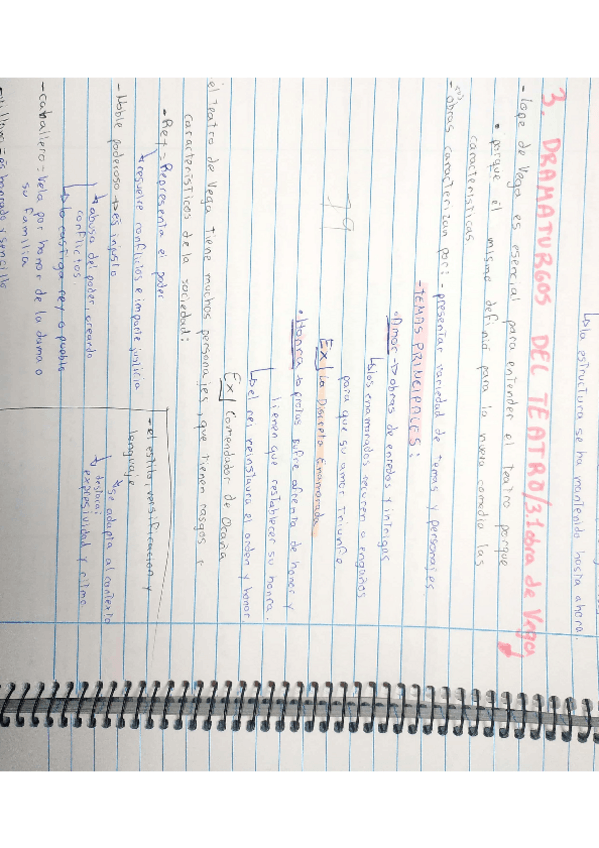 ↳la estructura se ha mantenido hasta ahora.
3. DRAMATURGOS DEL TEATRO/3.1 obra de Vega
- Lope de Vega es esencial para entender el teatro porque
• porque él mismo definio para la nueva comedia las
características
- sus obras caracterizan por: - presentar variedad de temas y personajes
- TEMAS PRINCIPALES:
• Amor → obras de enredos y intrigas
↳los enamorados recurren a engaños
para que su amor triunfe
Ex| La Discreta Enamorada
• Honra → protas sufre afrenta de honor y
tienen que restablecer su honra.
↳ el rei reinstaura el orden y honor
Ex| Comendador de Ocaña
el teatro de Vega tiene muchos personajes, que tienen rasgos
característicos de la sociedad:
- Rey = Representa el poder
↳ resuelve conflictos e imparte justicia
- Noble poderoso → es injusto
↳ abusa del poder, creando
conflictos
↳ lo castiga rey o pueblo
- caballero = vela por honor de la dama o
su familia
= es honrado y sencillo
- el estilo, versificación y
lenguaje
↳ se adapta al contexto
↳ destaca:
expresividad y ritmo